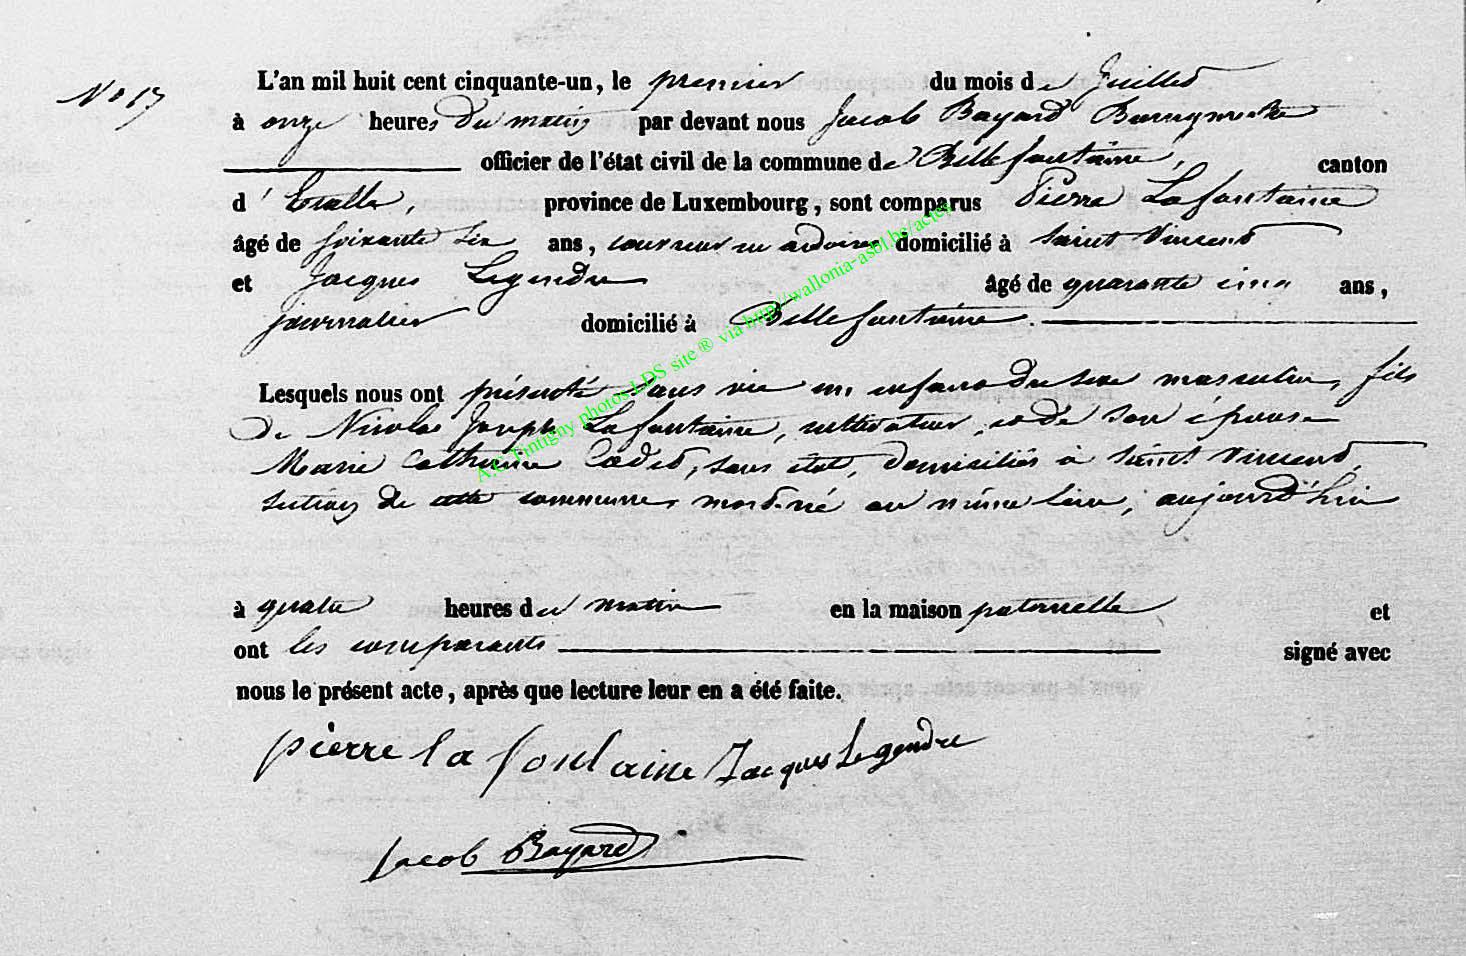 N° 17
L'an mil huit cent cinquante-un, le premier du mois de Juillet
à onze heures du matin par devant nous Jacob Bayard Bourgmestre
officier de l'état civil de la commune de Bellefontaine, canton
d'Etalle, province de Luxembourg, sont comparus Pierre Lafontaine
âgé de soixante six ans, couvreur en ardoises domicilié à Saint Vincent
et Jacques Legendre âgé de quarante cinq ans,
journalier domicilié à Bellefontaine.
Lesquels nous ont présenté sans vie un enfant du sexe masculin, fils
de Nicolas Joseph Lafontaine, cultivateur, et de son épouse
Marie Catherine Cadet, sans état, domiciliés à Saint Vincent,
section de cette commune, mort-né au même lieu, aujourd'hui
à quatre heures du matin en la maison paternelle et
ont les comparants signé avec
nous le présent acte, après que lecture leur en a été faite.
pierre la fontaine Jacques Legendre
Jacob Bayard
A.G. Tintigny photos LDS site ® via http://wallonia-asbl.be/actes